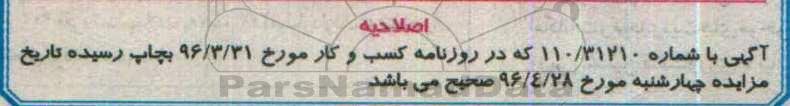 اصلاحیه
آگهی با شماره ۱۱۰/۳۱۲۱۰ که در روزنامه کسب و کار مورخ ۹۶/۳/۳۱ بچاپ رسیده تاریخ
مزایده چهارشنبه مورخ ۹۶/٤/۲۸ صحیح می باشد
ParsNamadData